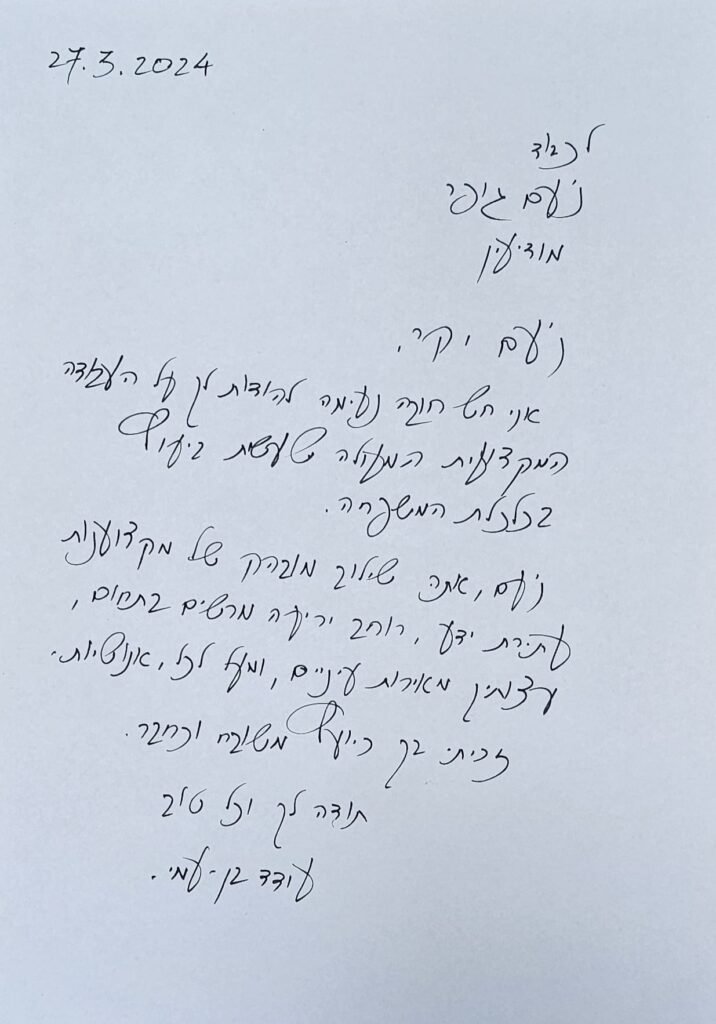 27.3.2024
לכבוד
נעם גיפרי
מודיעין
נעם יקר,
אני חש חובה נעימה להודות לך על העבודה
המקצועית המעולה שעשית ביעוץ
בכלכלת המשפחה.
נעם, אתה שילוב מובהק של מקצוענות
עתירת ידע, רוחב יריעה מרשים בתחום,
עצותיך מאירות עיניים, ומעל לכל, אנושיות.
זכיתי בך כיועץ משובח וכחבר.
תודה לך וכל טוב
עודד בן-עמי.